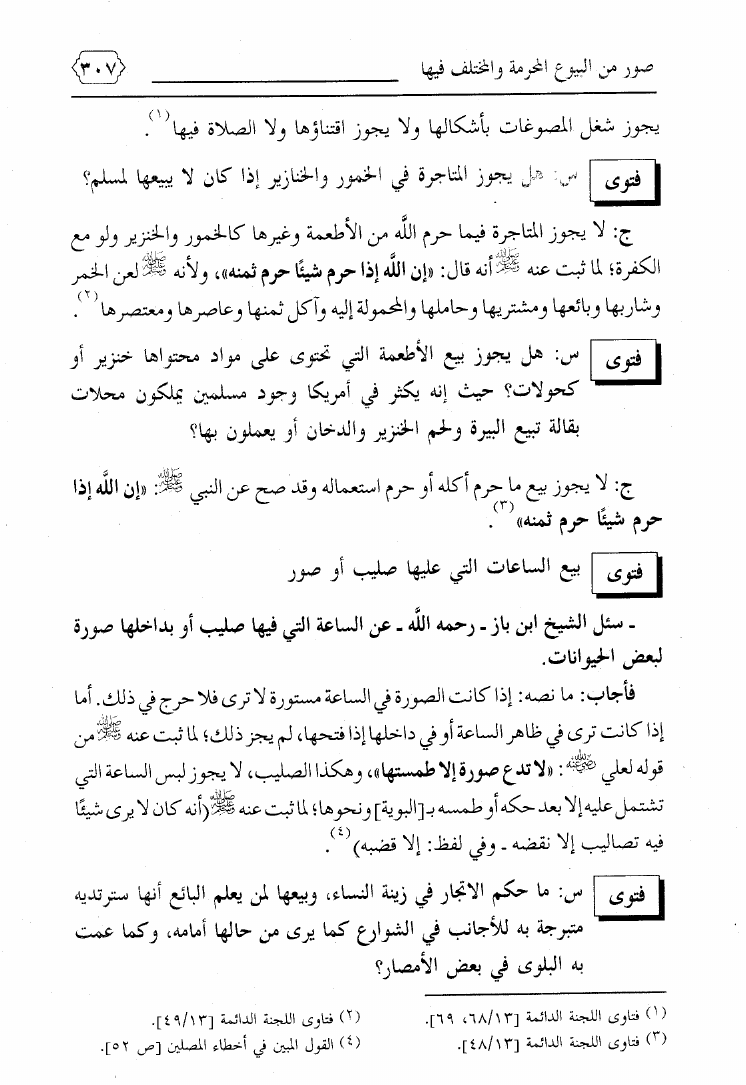 صور من البيوع المحرمة والمختلف فيها ٣٠٧
يجوز شغل المصوغات بأشكالها ولا يجوز اقتناؤها ولا الصلاة فيها(١).
فتوى س: هل يجوز المتاجرة في الخمور والخنازير إذا كان لا يبيعها لمسلم؟
ج: لا يجوز المتاجرة فيما حرم الله من الأطعمة وغيرها كالخمور والخنزير ولو مع
الكفرة؛ لما ثبت عنه ﷺ أنه قال: «إن الله إذا حرم شيئًا حرم ثمنه»، ولأنه ﷺ لعن الخمر
وشاربها وبائعها ومشتريها وحاملها والمحمولة إليه وآكل ثمنها وعاصرها ومعتصرها(٢).
فتوى س: هل يجوز بيع الأطعمة التي تحتوى على مواد محتواها خنزير أو
كحولات؟ حيث إنه يكثر في أمريكا وجود مسلمين يملكون محلات
بقالة تبيع البيرة ولحم الخنزير والدخان أو يعملون بها؟
ج: لا يجوز بيع ما حرم أكله أو حرم استعماله وقد صح عن النبي ﷺ: «إن الله إذا
حرم شيئًا حرم ثمنه»(٣).
فتوى بيع الساعات التي عليها صليب أو صور
ـ سئل الشيخ ابن باز ـ رحمه الله ـ عن الساعة التي فيها صليب أو بداخلها صورة
لبعض الحيوانات.
فأجاب: ما نصه: إذا كانت الصورة في الساعة مستورة لا ترى فلا حرج في ذلك. أما
إذا كانت ترى في ظاهر الساعة أو في داخلها إذا فتحها، لم يجز ذلك؛ لما ثبت عنه ﷺ من
قوله لعلي رضي الله عنه: «لا تدع صورة إلا طمستها»، وهكذا الصليب، لا يجوز لبس الساعة التي
تشتمل عليه إلا بعد حكه أو طمسه بـ[البوية] ونحوها؛ لما ثبت عنه ﷺ (أنه كان لا يرى شيئًا
فيه تصاليب إلا نقضه ـ وفي لفظ: إلا قضبه)(٤).
فتوى س: ما حكم الاتجار في زينة النساء، وبيعها لمن يعلم البائع أنها سترتديه
متبرجة به للأجانب في الشوارع كما يرى من حالها أمامه، وكما عمت
به البلوى في بعض الأمصار؟
(١) فتاوى اللجنة الدائمة [٦٨/١٣، ٦٩]. (٢) فتاوى اللجنة الدائمة [٤٩/١٣].
(٣) فتاوى اللجنة الدائمة [٤٨/١٣]. (٤) القول المبين في أخطاء المصلين [ص ٥٢].